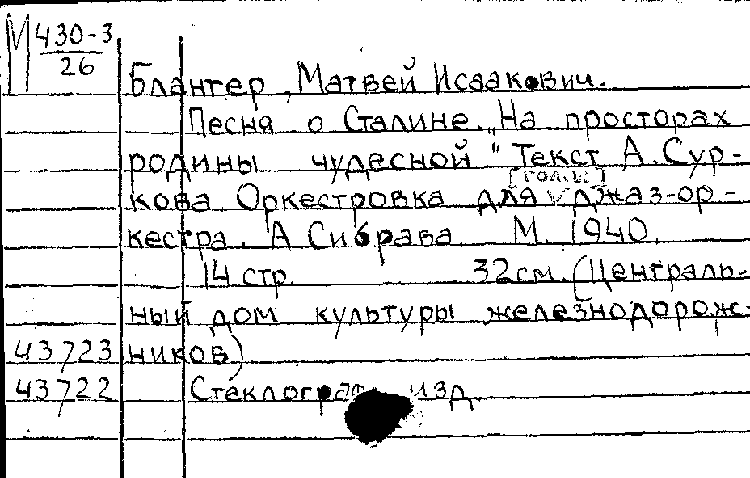 М 430-3
26
Блантер, Матвей Исаакович.
Песня о Сталине. „На просторах
родины чудесной" Текст А. Сур-
[голос]
кова Оркестровка для джаз-ор-
кестра. А Сибрава М. 1940.
14 стр. 32 см. (Централь-
ный дом культуры железнодорож-
43723 ников)
43722 Стеклограф. изд.